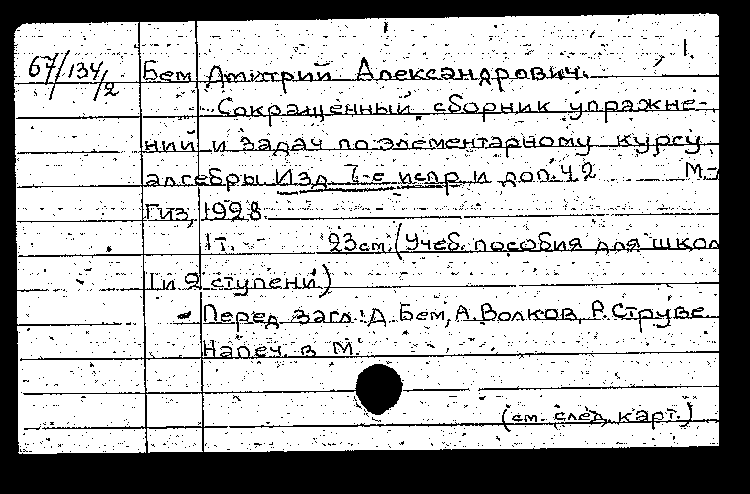 67/134/2 Бем Дмитрий Александрович.
Сокращенный сборник упражне-
ний и задач по элементарному курсу
алгебры Изд. 7-е испр и доп. Ч.2 М.-
Гиз, 1928.
1т. 23см. (Учеб. пособия для школ
I и 2 ступени)
Перед загл.: Д. Бем, А. Волков, Р. Струве
Напеч. в М.
(см. след. карт.)